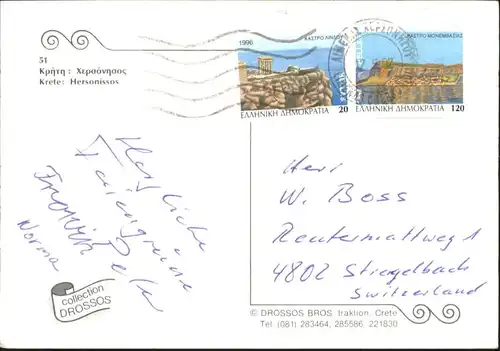 51
Κρήτη : Χερσόνησος
Krete: Hersonissos
1996
ΚΑΣΤΡΟ ΛΙΝΔΟΥ
20
ΕΛΛΗΝΙΚΗ ΔΗΜΟΚΡΑΤΙΑ
ΚΑΣΤΡΟ ΜΟΝΕΜΒΑΣΙΑΣ
ΕΛΛΗΝΙΚΗ ΔΗΜΟΚΡΑΤΙΑ 120
Herzliche
Feriengrüsse
Norma
Herr
W. Boss
Reutermattweg 1
4802 Striegelbach
Switzerland
collection
DROSSOS
© DROSSOS BROS. Iraklion, Crete
Tel (081) 283464, 285586, 221830